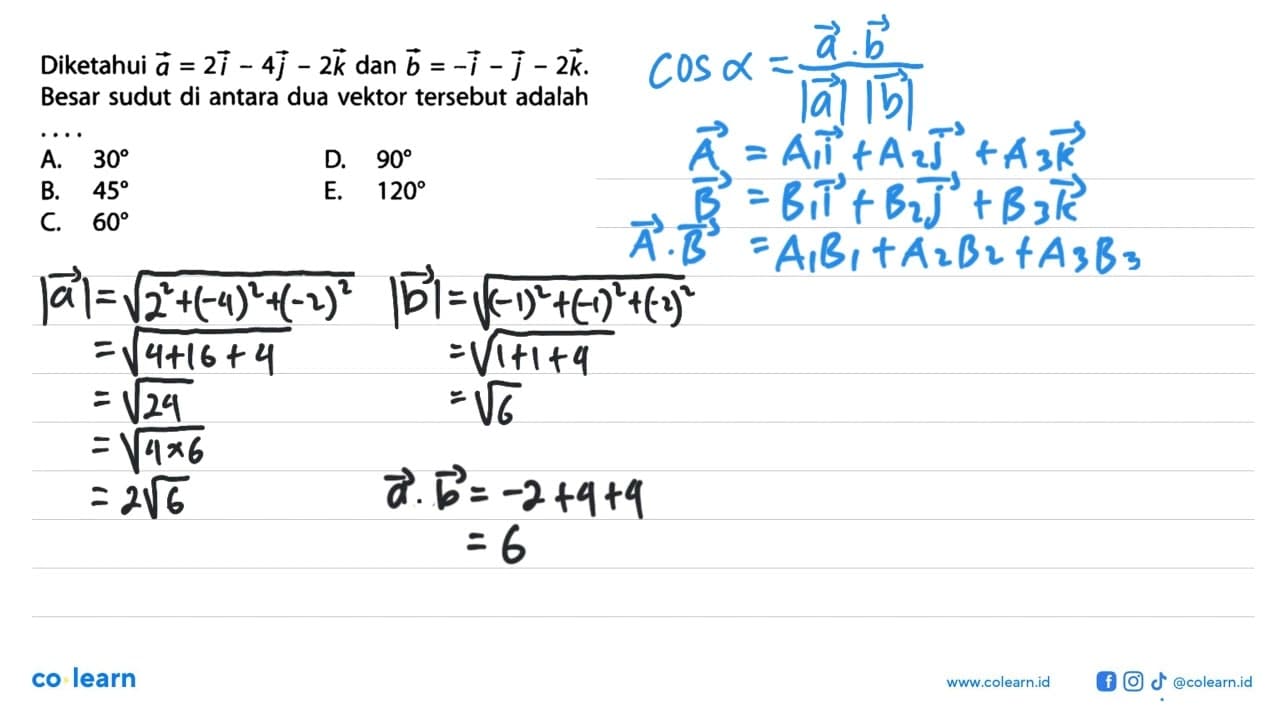 Diketahui a⃗ = 2i⃗ – 4j⃗ – 2k⃗ dan b⃗ = –i⃗ – j⃗ – 2k⃗.
Besar sudut di antara dua vektor tersebut adalah
....
A. 30° D. 90°
B. 45° E. 120°
C. 60°
cos α = a⃗ . b⃗ / |a⃗| |b⃗|
A⃗ = A₁i⃗ + A₂j⃗ + A₃k⃗
B⃗ = B₁i⃗ + B₂j⃗ + B₃k⃗
A⃗ . B⃗ = A₁B₁ + A₂B₂ + A₃B₃
|a⃗| = √(2² + (-4)² + (-2)²)
= √(4 + 16 + 4)
= √24
= √(4 × 6)
= 2√6
|b⃗| = √((-1)² + (-1)² + (-2)²)
= √(1 + 1 + 4)
= √6
a⃗ . b⃗ = -2 + 4 + 4
= 6
co learn
www.colearn.id
@colearn.id